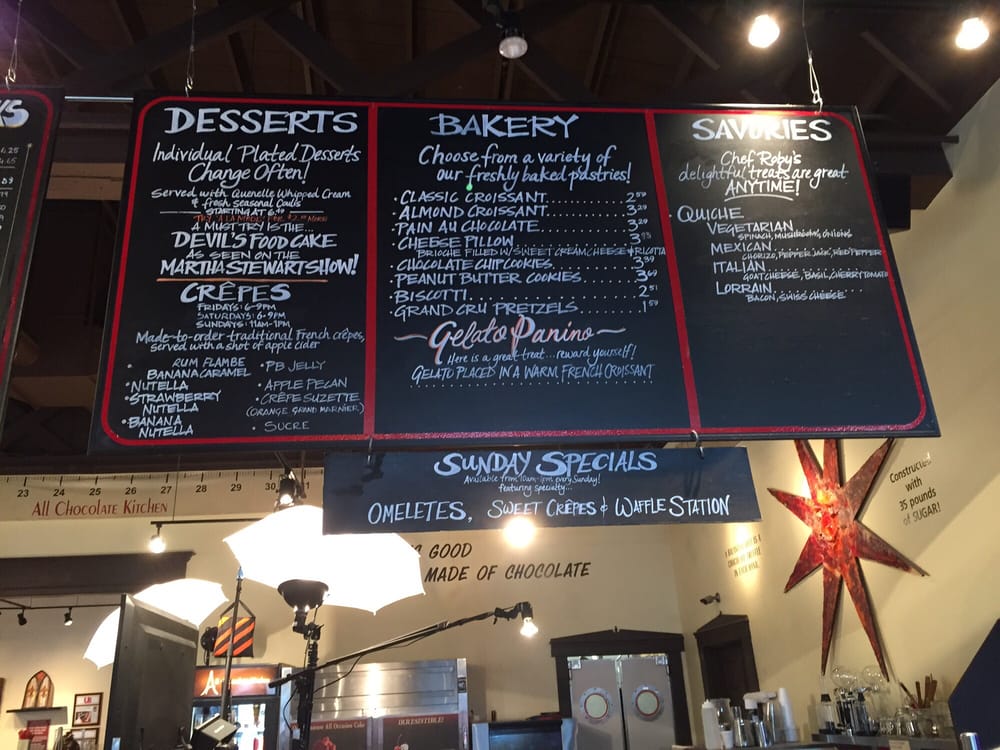 DESSERTS
Individual Plated Desserts
Change Often!
Served with Quenelle Whipped Cream
& fresh seasonal Coulis
STARTING AT 6.49
A MUST TRY IS THE...
DEVIL'S FOOD CAKE
AS SEEN ON THE
MARTHA STEWART SHOW!
CRÊPES
FRIDAYS: 6-9PM
SATURDAYS: 6-9PM
SUNDAYS: 11AM-1PM
Made-to-order traditional French crêpes,
served with a shot of apple cider
• RUM FLAMBE
BANANA CARAMEL
• NUTELLA
• STRAWBERRY
NUTELLA
• BANANA
NUTELLA
• PB JELLY
• APPLE PECAN
• CRÊPE SUZETTE
(ORANGE GRAND MARNIER)
• SUCRE
BAKERY
Choose from a variety of
our freshly baked pastries!
• CLASSIC CROISSANT 2.59
• ALMOND CROISSANT 3.29
• PAIN AU CHOCOLATE 3.29
• CHEESE PILLOW
BRIOCHE FILLED W/SWEET CREAM CHEESE & RICOTTA
• CHOCOLATE CHIP COOKIES 3.39
• PEANUT BUTTER COOKIES 3.69
• BISCOTTI
• GRAND CRU PRETZELS 1.59
~Gelato Panino~
Here is a great treat...reward yourself!
GELATO PLACED IN A WARM FRENCH CROISSANT
SAVORIES
Chef Roby's
delightful treats are great
ANYTIME!
• QUICHE
VEGETARIAN
SPINACH, MUSHROOMS, ONIONS
MEXICAN
CHORIZO, PEPPER JACK, RED PEPPER
ITALIAN
GOAT CHEESE, BASIL, CHERRY TOMATO
LORRAIN
BACON, SWISS CHEESE
SUNDAY SPECIALS
Available from 10am-1pm every Sunday!
featuring specialty...
OMELETES, SWEET CRÊPES & WAFFLE STATION
23 24 25 26 27 28 29 30
All Chocolate Kitchen
GOOD
MADE OF CHOCOLATE
Constructed
with
35 pounds
of SUGAR!
IRRESISTIBLE!